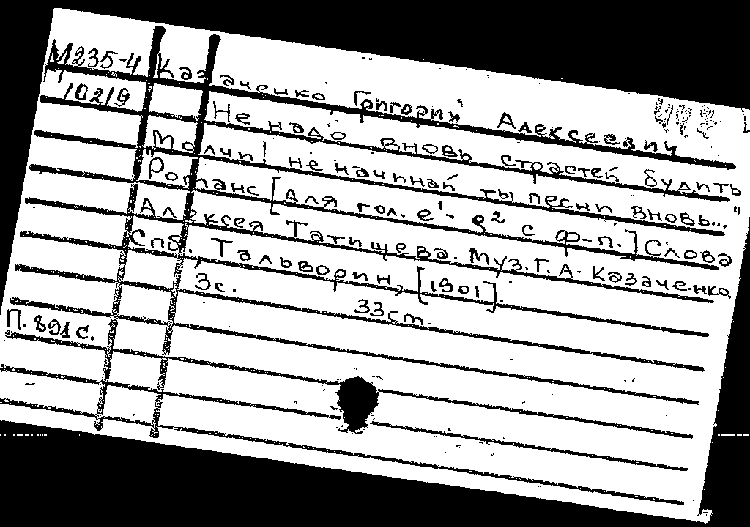 М235-4 Казаченко Григорий Алексеевич
10219 Не надо вновь страстей будить
"Молчи! не начинай ты песни вновь..."
Романс [для гол. e¹- e² с ф-п.] Слова
Алексея Татищева. Муз. Г. А. Казаченко.
Спб., Тальворин, [1901].
3с. 33см.
П. 891 с.